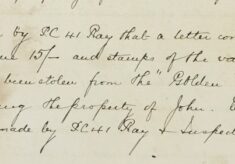 by PC 41 Ray that a letter con
15/- and stamps of the va
been stolen from the "Golden
the property of John.
made by PC 41 Ray & Inspect